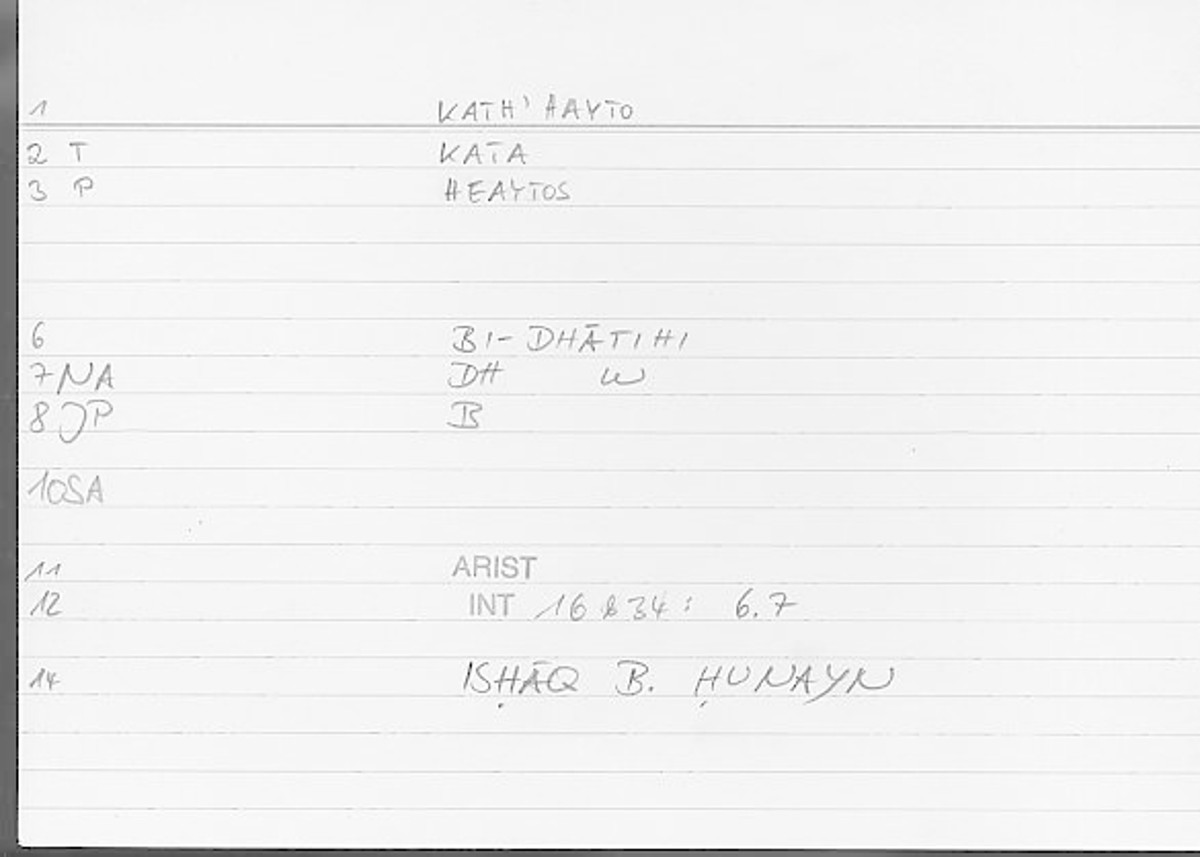 1 KATH' HAYTO
2 T KATA
3 P HEAYTOS
6 BI-DHĀTIHI
7 NA DH W
8 JP B
10 SA
11 ARIST
12 INT 16 B 34 : 6.7
14 ISḤĀQ B. ḤUNAYN